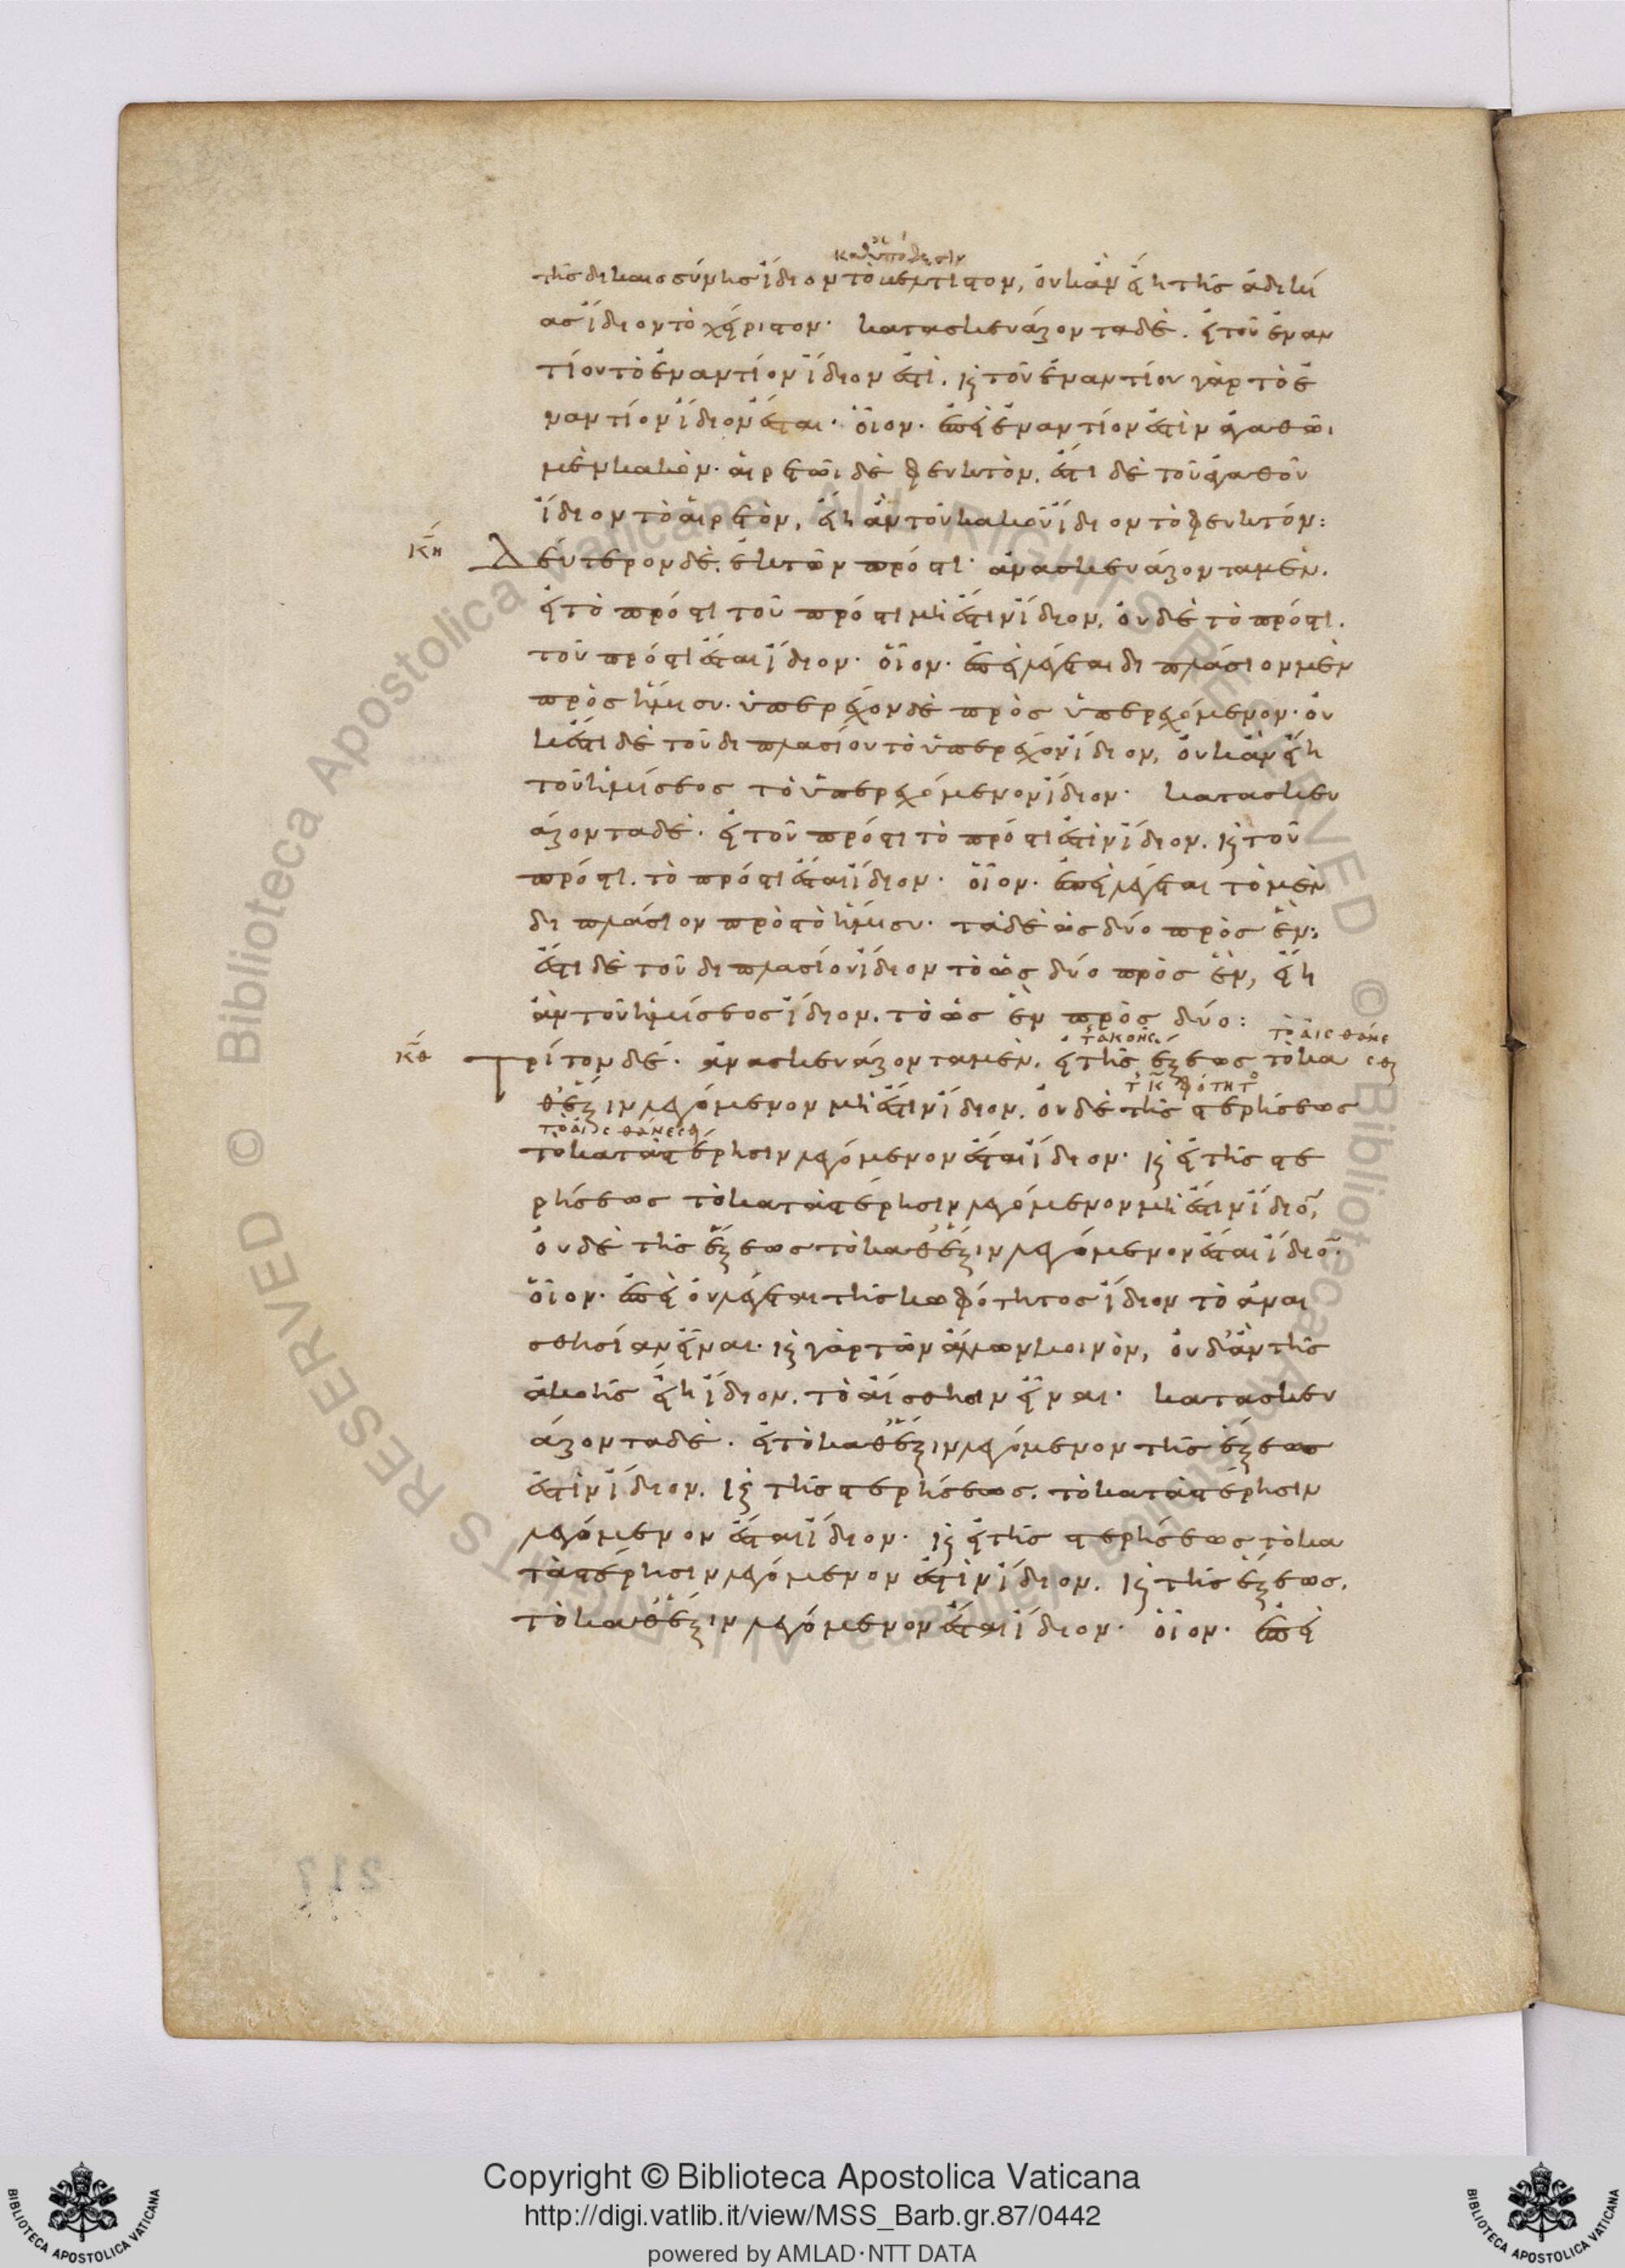 καθ' ὑπόθεσιν
τῆς δικαιοσύνης ἴδιον τὸ βέλτιστον, οὐκ ἂν εἴη τῆς ἀδικί
ας ἴδιον τὸ χείριστον· κατασκευάζοντα δὲ. εἰ τοῦ ἐναν
τίου τὸ ἐναντίον ἴδιον ἐστὶ. καὶ τοῦ ἐναντίου γὰρ τὸ ἐ
ναντίον ἴδιον ἔσται· οἷον· ἐπεὶ ἐναντίον ἐστὶν ἀγαθῶι
μὲν κακὸν· αἱρετῶι δὲ φευκτὸν. ἔστι δὲ τοῦ ἀγαθοῦ
ἴδιον τὸ αἱρετὸν, εἴη ἂν τοῦ κακοῦ ἴδιον τὸ φευκτόν:
κη Δεύτερον δὲ. ἐκ τῶν πρός τι· ἀνασκευάζοντα μὲν.
εἰ τὸ πρός τι τοῦ πρός τι μή ἐστιν ἴδιον. οὐδὲ τὸ πρός τι.
τοῦ πρός τι ἔσται ἴδιον· οἷον· ἐπεὶ λέγεται διπλάσιον μὲν
πρὸς ἥμισυ· ὑπερέχον δὲ πρὸς ὑπερεχόμενον· οὐ
κ ἔστι δὲ τοῦ διπλασίου τὸ ὑπερέχον ἴδιον, οὐκ ἂν εἴη
τοῦ ἡμίσεος τὸ ὑπερεχόμενον ἴδιον· κατασκευ
άζοντα δὲ· εἰ τοῦ πρός τι τὸ πρός τι ἐστὶν ἴδιον. καὶ τοῦ
πρός τι. τὸ πρός τι ἔσται ἴδιον· οἷον· ἐπεὶ λέγεται τὸ μὲν
διπλάσιον πρὸς τὸ ἥμισυ· τὰ δὲ ὡς δύο πρὸς ἕν:
ἔστι δὲ τοῦ διπλασίου ἴδιον τὸ ὡς δύο πρὸς ἓν, εἴη
ἂν τοῦ ἡμίσεος ἴδιον. τὸ ὡς ἓν πρὸς δύο:
τῆς ἀκοῆς τὸ αἰσθάνε
κθ Τρίτον δέ· ἀνασκευάζοντα μὲν. εἰ τῆς ἕξεως τὸ κα σθαι
τῆς κωφότητος
θ' ἕξιν λεγόμενον μή ἐστιν ἴδιον. οὐδὲ τῆς στερήσεως
τὸ αἰσθάνεσθαι
τὸ κατὰ στέρησιν λεγόμενον ἔσται ἴδιον· καὶ εἰ τῆς στε
ρήσεως τὸ κατὰ στέρησιν λεγόμενον μή ἐστιν ἴδιον,
οὐδὲ τῆς ἕξεως τὸ καθ' ἕξιν λεγόμενον ἔσται ἴδιον·
οἷον· ἐπεὶ οὐ λέγεται τῆς κωφότητος ἴδιον τὸ ἀναι
σθησίαν εἶναι· καὶ γὰρ τῶν ἄλλων κοινὸν, οὐδ' ἂν τῆς
ἀκοῆς εἴη ἴδιον. τὸ αἴσθησιν εἶναι· κατασκευ
άζοντα δὲ. εἰ τὸ καθ' ἕξιν λεγόμενον τῆς ἕξεως
ἐστὶν ἴδιον. καὶ τῆς στερήσεως. τὸ κατὰ στέρησιν
λεγόμενον ἔσται ἴδιον· καὶ εἰ τῆς στερήσεως τὸ κα
τὰ στέρησιν λεγόμενον ἐστὶν ἴδιον. καὶ τῆς ἕξεως.
τὸ καθ' ἕξιν λεγόμενον ἔσται ἴδιον· οἷον· ἐπεὶ
217
© Biblioteca Apostolica Vaticana ALL RIGHTS RESERVED © Biblioteca Apostolica Vaticana ALL RIGHTS RESERVED
Copyright © Biblioteca Apostolica Vaticana
http://digi.vatlib.it/view/MSS_Barb.gr.87/0442
powered by AMLAD·NTT DATA
BIBLIOTECA APOSTOLICA VATICANA
BIBLIOTECA APOSTOLICA VATICANA